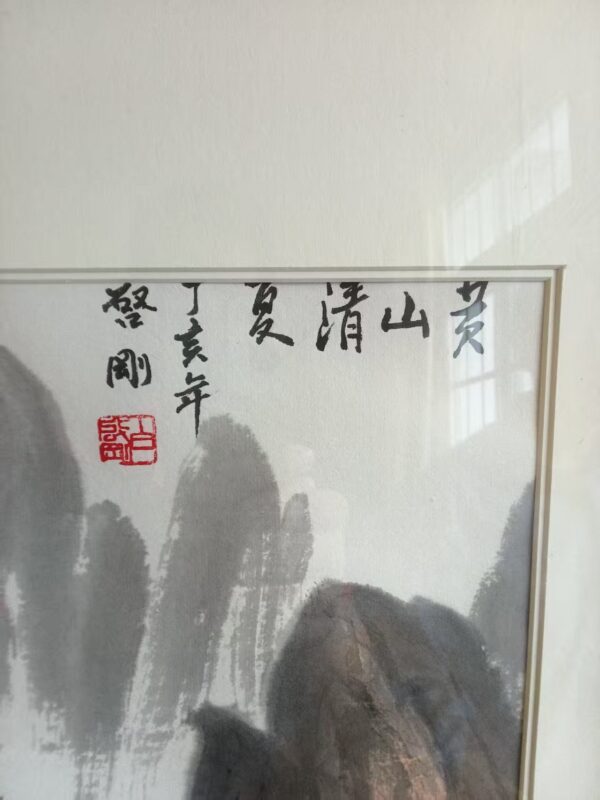 黄山清夏
丁亥年
啓剛